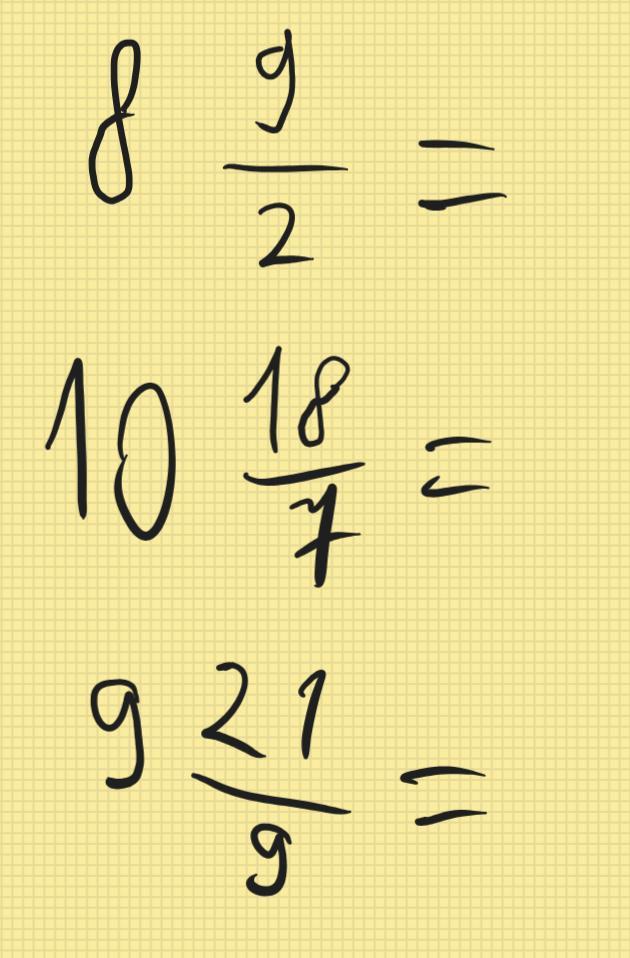 8 9/2 =
10 18/7 =
9 21/9 =